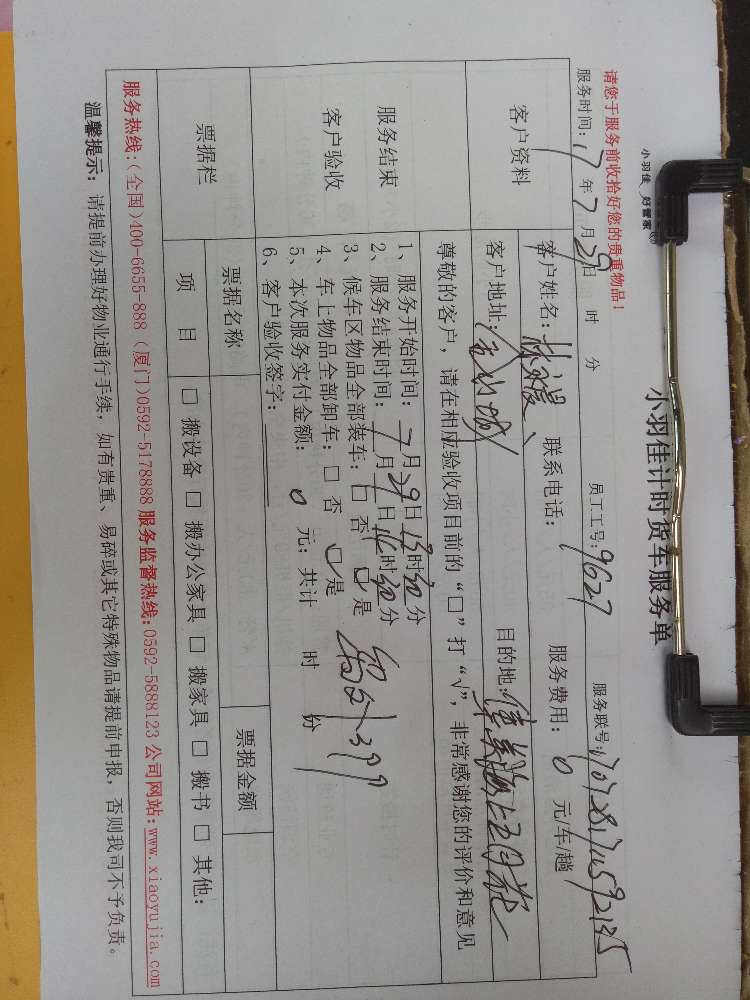 小羽佳 好管家
小羽佳计时货车服务单
请您于服务前收拾好您的贵重物品！
员工工号：9627 服务联号：
服务时间：17年7月29日 时 分
客户资料
客户姓名： 联系电话： 服务费用：0元/车/趟
客户地址： 目的地：
尊敬的客户，请在相应验收项目前的“□”打“√”，非常感谢您的评价和意见
服务结束
客户验收
1、服务开始时间：7月29日13时30分
2、服务结束时间：7月29日16时30分
3、候车区物品全部装车：□ 否 □ 是
4、车上物品全部卸车：□ 否 □ 是
5、本次服务实付金额：0元；共计 时 份
6、客户验收签字：
399
票据栏
票据名称 票据金额
项 目 □ 搬设备 □ 搬办公家具 □ 搬家具 □ 搬书 □ 其他：
服务热线：(全国)400-6655-888 (厦门)0592-5178888 服务监督热线：0592-5888123 公司网站：www.xiaoyujia.com
温馨提示：请提前办理好物业通行手续，如有贵重、易碎或其它特殊物品请提前申报，否则我司不予负责。